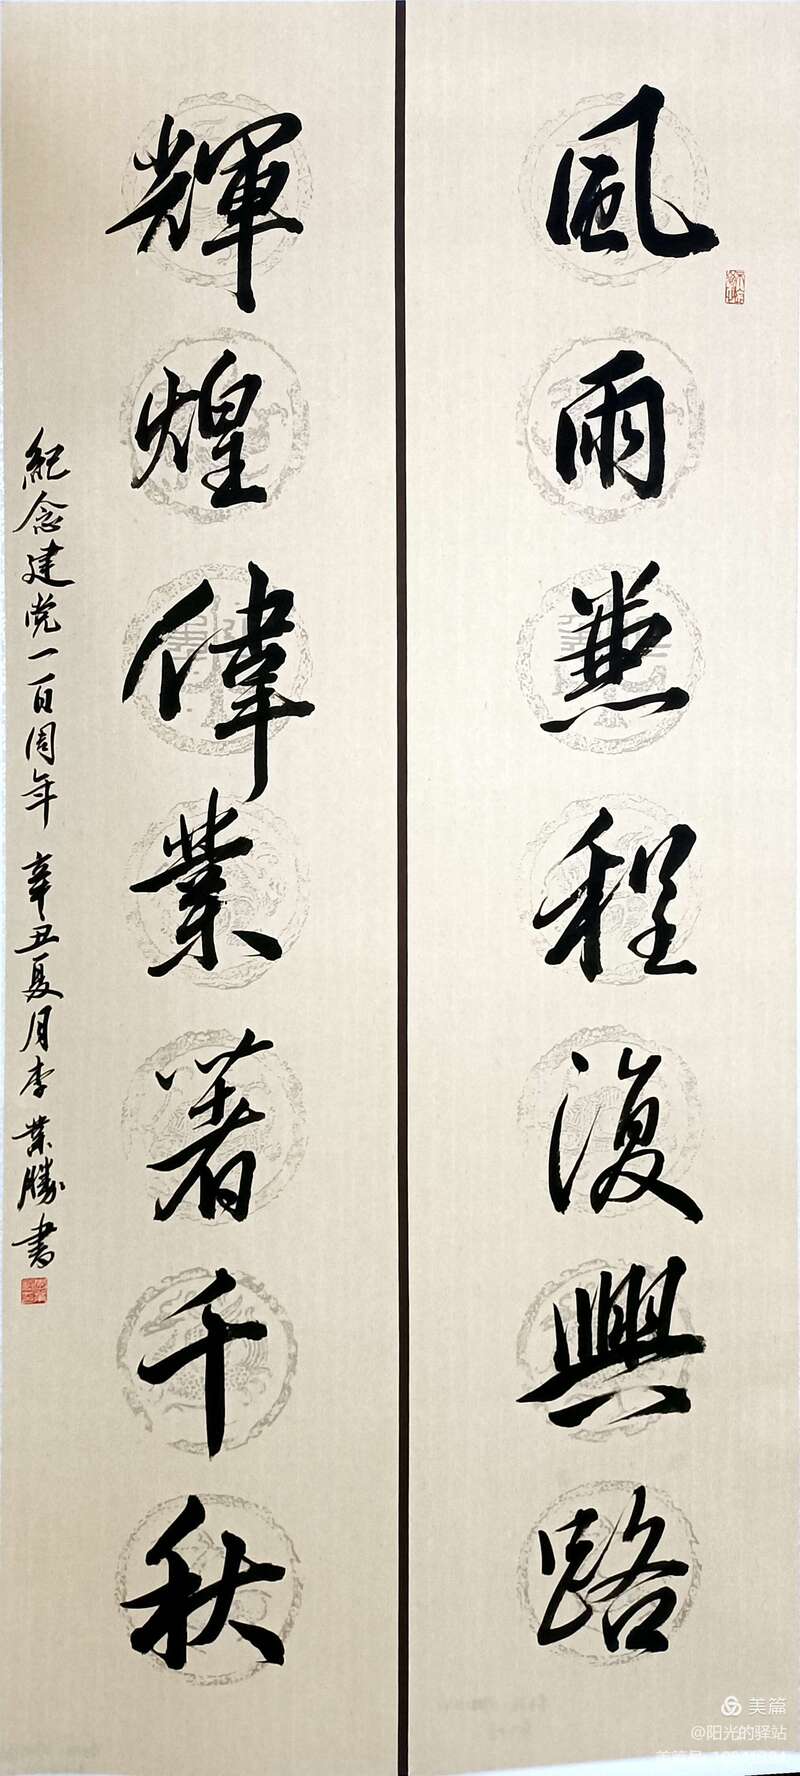 風雨兼程復興路
輝煌偉業著千秋
紀念建党一百周年 辛丑夏月李業勝書
美篇
@阳光的驿站